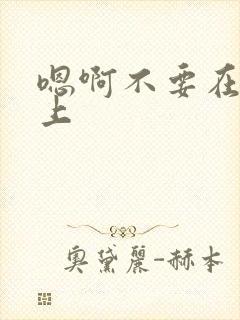 嗯啊不要在
上
奥黛丽-赫本